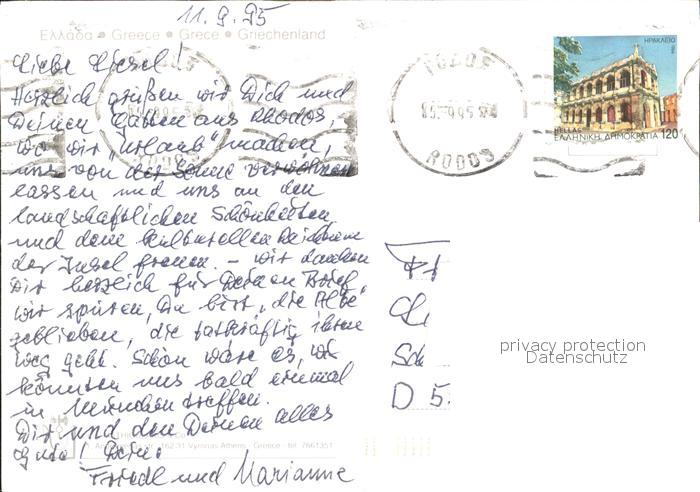 11.9.95
Ελλάδα • Greece • Grece • Griechenland
Liebe Liesel!
Herzlich grüßen wir Dich und
Deinen Gatten aus Rhodos,
wo wir "Urlaub" machen,
uns von der Sonne verwöhnen
lassen und uns an den
landschaftlichen Schönheiten
und dem kulturellen Reichtum
der Insel freuen. – Wir danken
Dir herzlich für Deinen Brief,
wir spüren, Du bist "die Alte"
geblieben, die tatkräftig ihren
Weg geht. Schön wäre es, wir
könnten uns bald einmal
in München treffen.
Dir und den Deinen alles
Gute! Deine
Friedl und Marianne
162 31 Vyronas Athens - Greece - tel. 7661351
ΡΟΔΟΣ
RODOS
ΗΡΑΚΛΕΙΟ
HELLAS
ΕΛΛΗΝΙΚΗ ΔΗΜΟΚΡΑΤΙΑ 120
Sch
D 5
privacy protection
Datenschutz